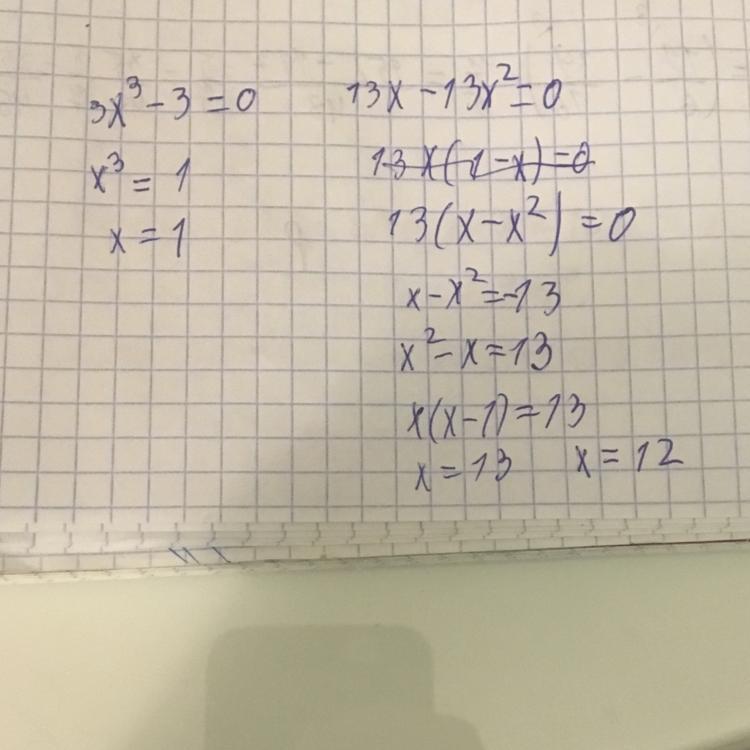 3x³ - 3 = 0
x³ = 1
x = 1
13x - 13x² = 0
13x(1-x) = 0
13(x - x²) = 0
x - x² = -13
x² - x = 13
x(x-1) = 13
x = 13 x = 12